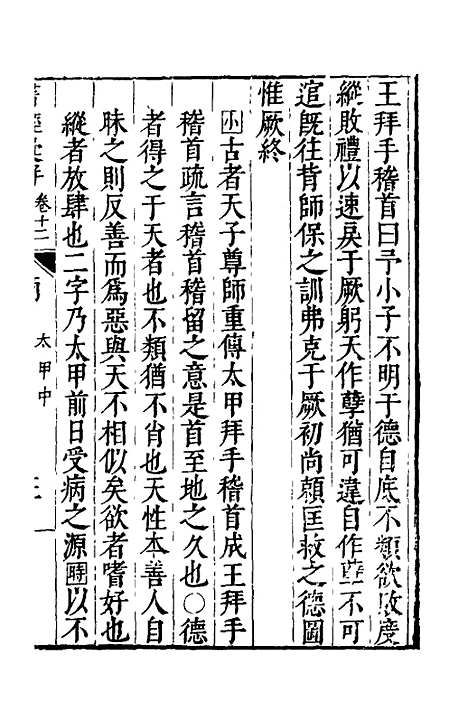 王拜手稽首曰予小子不明于德自底不類欲敗度
縱敗禮以速戾于厥躬天作孽猶可違自作孽不可
逭旣往背師保之訓弗克于厥初尚頼匡救之德圖
惟厥終
小古者天子尊師重傅太甲拜手稽首成王拜手
稽首疏言稽首稽留之意是首至地之久也○德
者得之于天者也不類猶不肖也天性本善人自
昧之則反善而爲惡與天不相似矣欲者嗜好也
縱者放肆也二字乃太甲前日受病之源時以不
卷十二
商
太甲中